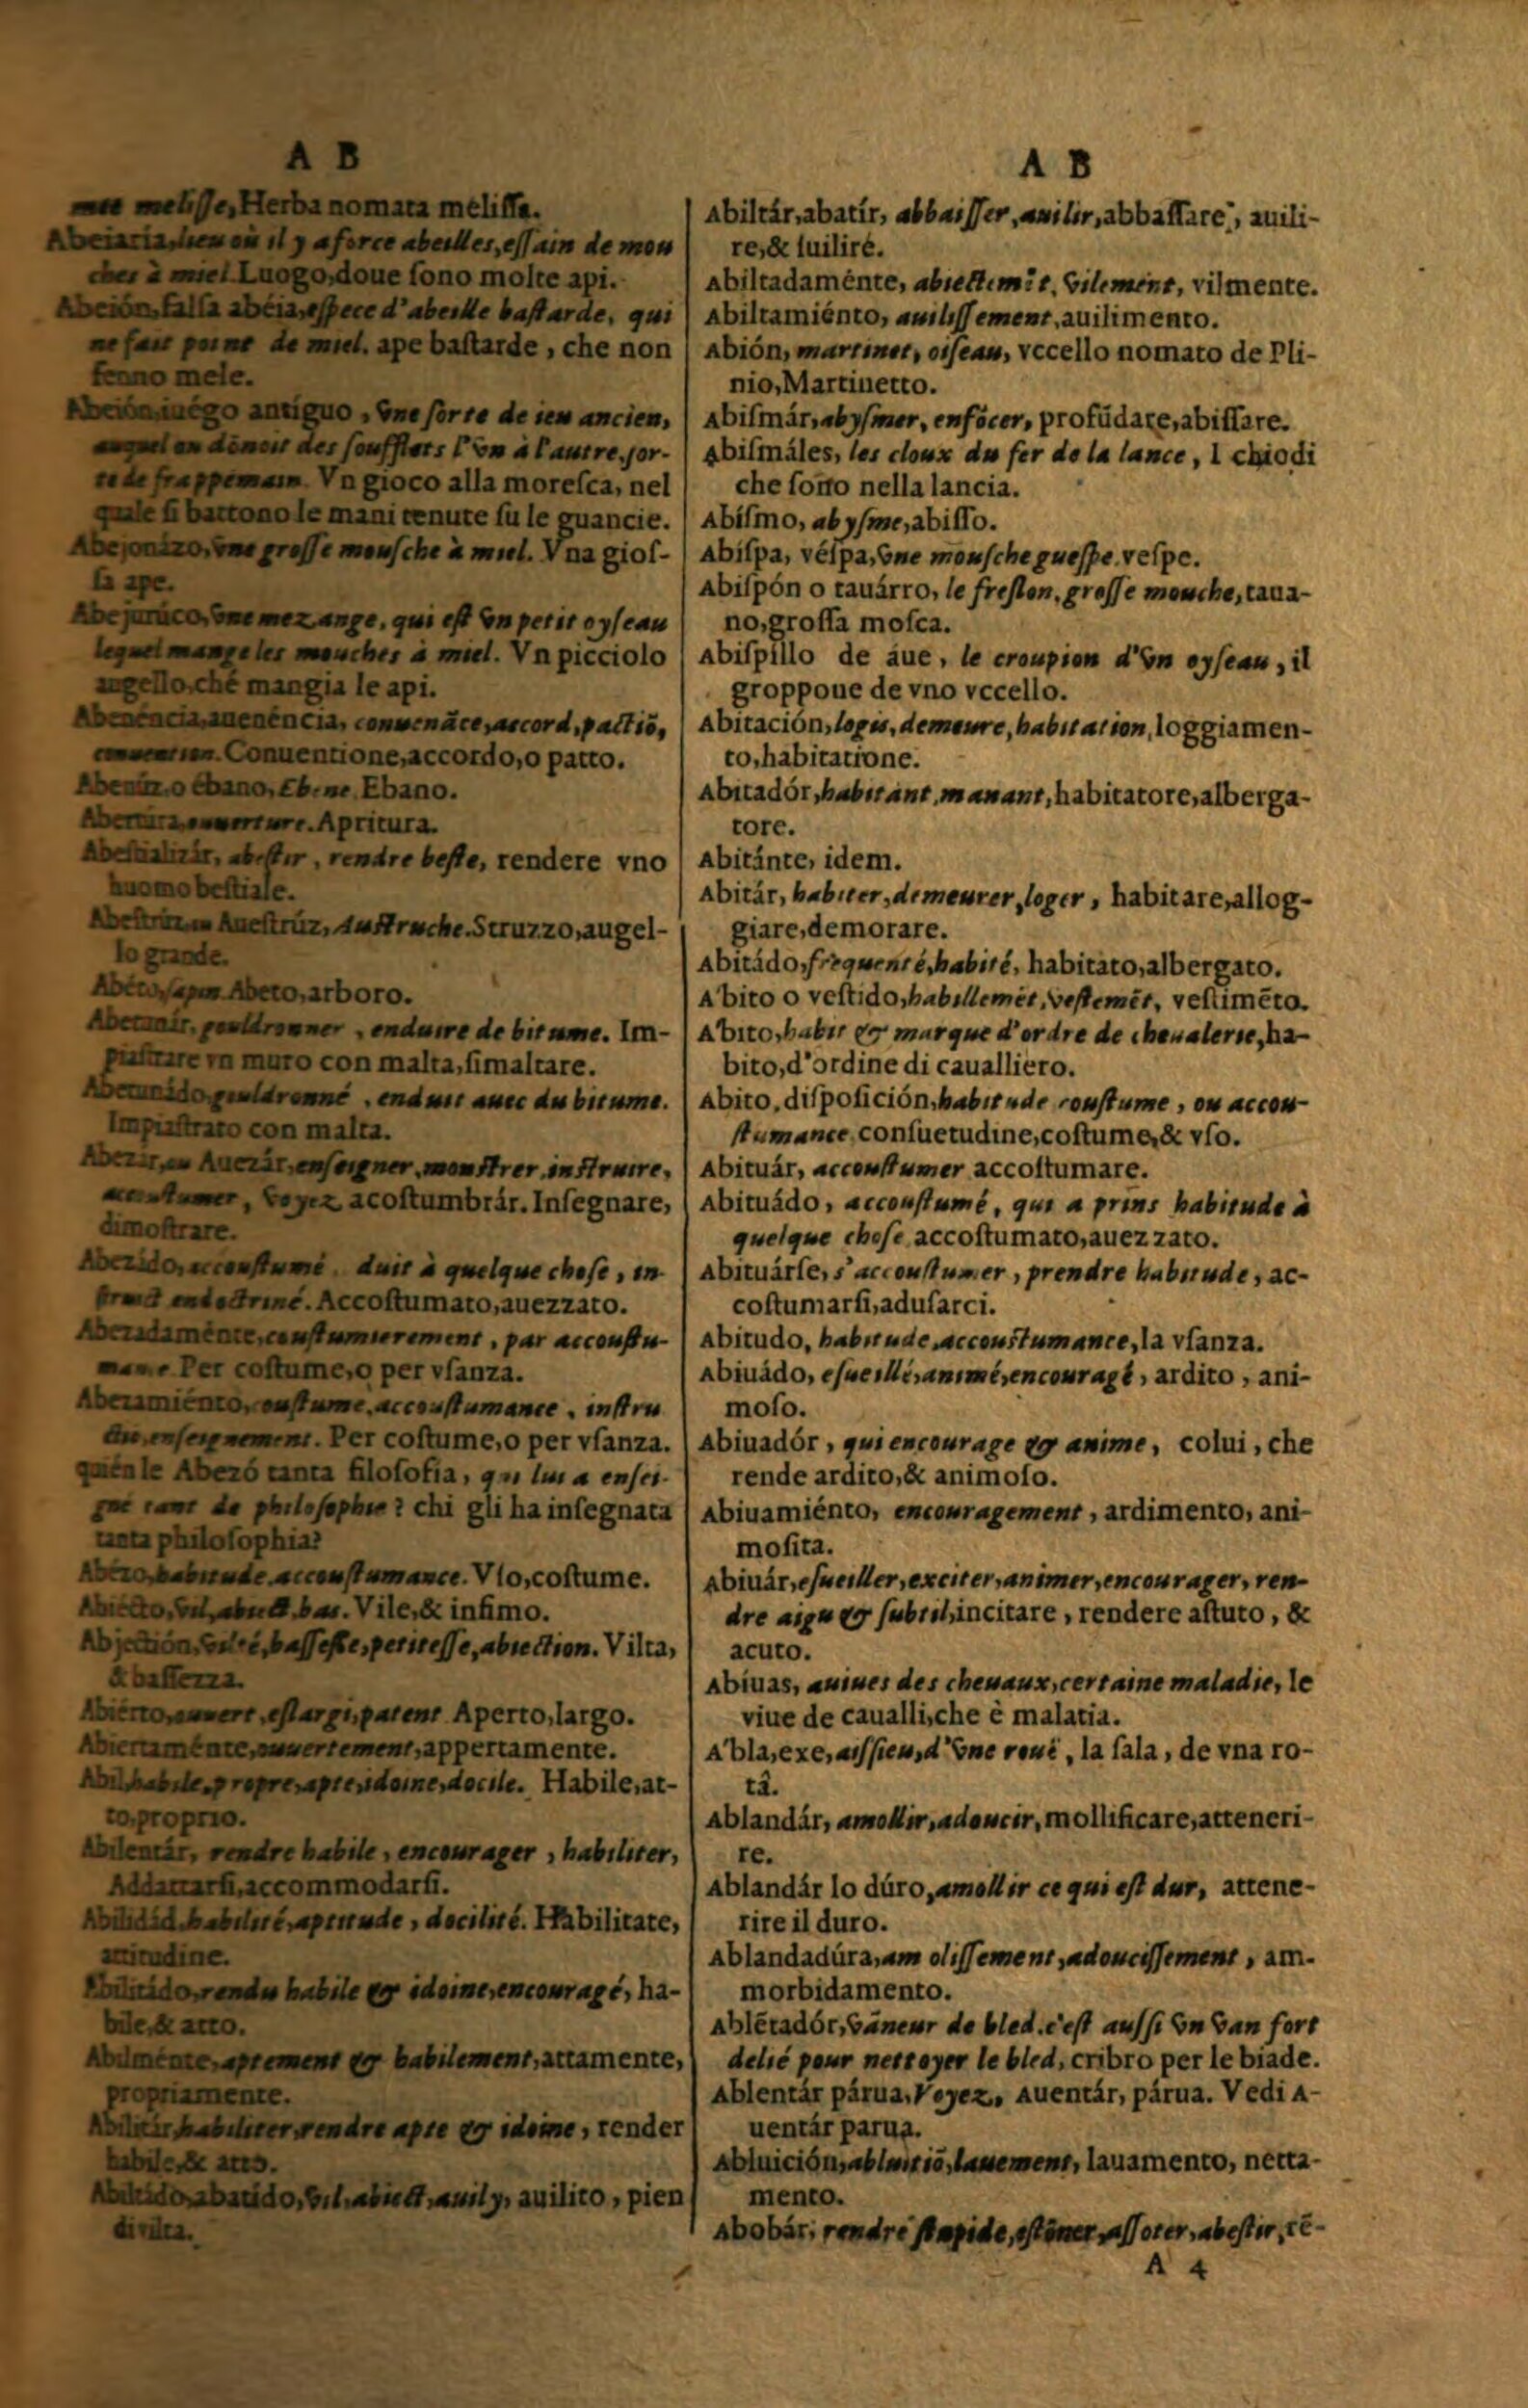 A B
mee melisse, Herba nomata melissa.
Abeiaria, lieu où il y a force abeilles, essain de mou
ches à miel. Luogo, doue sono molte api.
Abeión, falsa abéia, espece d'abeille bastarde, qui
ne fait point de miel. ape bastarde, che non
fenno mele.
Abeión, iuégo antíguo, vne sorte de ieu ancien,
auquel on dōnoit des soufflets l'vn à l'autre, sor-
te de frappemain. Vn gioco alla moresca, nel
quale si battono le mani tenute su le guancie.
Abejonázo, vne grosse mousche à miel. Vna gios-
sa ape.
Abejurúco, vne mezange, qui est vn petit oyseau
lequel mange les mouches à miel. Vn picciolo
augello, ché mangia le api.
Abenéncia, auenéncia, conuenāce, accord, pactiō,
conuention. Conuentione, accordo, o patto.
Abenúz, o ébano, Ebene. Ebano.
Abertúra, ouuerture. Apritura.
Abestializár, abestir, rendre beste, rendere vno
huomo bestiale.
Abestrúz, ou Auestrúz, Austruche. Struzzo, augel-
lo grande.
Abéto, sapin. Abeto, arboro.
Abetunár, gouldronner, enduire de bitume. Im-
piastrare vn muro con malta, simaltare.
Abetunádo, gouldronné, enduit auec du bitume.
Impiastrato con malta.
Abezár, ou Auezár, enseigner, monstrer, instruire,
accoustumer, voyez acostumbrár. Insegnare,
dimostrare.
Abezádo, accoustumé, duit à quelque chose, in-
struict endoctriné. Accostumato, auezzato.
Abezadaménte, coustumierement, par accoustu-
mance. Per costume, o per vsanza.
Abezamiénto, coustume, accoustumance, instru
ctiō, enseignement. Per costume, o per vsanza.
quién le Abezó tanta filosofia, qui lui a ensei-
gné tant de philosophie? chi gli ha insegnata
tanta philosophia?
Abézo, habitude, accoustumance. Vso, costume.
Abiécto, vil, abiect, bas. Vile, & infimo.
Abjectión, vilté, bassesse, petitesse, abiection. Vilta,
& bassezza.
Abiérto, ouuert, eslargi, patent. Aperto, largo.
Abiertaménte, ouuertement, appertamente.
Abil, habile, propre, apte, idoine, docile. Habile, at-
to, proprio.
Abilentár, rendre habile, encourager, habiliter,
Addattarsi, accommodarsi.
Abilidád, habilité, aptitude, docilité. Habilitate,
attitudine.
Abilitádo, rendu habile & idoine, encouragé, ha-
bile, & atto.
Abilménte, aptement & habilement, attamente,
propriamente.
Abilitár, habiliter, rendre apte & idoine, render
habile, & atto.
Abiltádo, abatído, vil, abiect, auily, auilito, pien
di vilta.
A B
Abiltár, abatír, abbaisser, auilir, abbassare, auili-
re, & suiliré.
Abiltadaménte, abiectemēt, vilement, vilmente.
Abiltamiénto, auilissement, auilimento.
Abión, martinet, oiseau, vccello nomato de Pli-
nio, Martinetto.
Abismár, abysmer, enfōcer, profūdare, abissare.
Abismáles, les cloux du fer de la lance, I chiodi
che sono nella lancia.
Abísmo, abysme, abisso.
Abíspa, véspa, vne mousche guespe. vespe.
Abispón o tauárro, le freslon, grosse mouche, taua-
no, grossa mosca.
Abispíllo de áue, le croupion d'vn oyseau, il
groppoue de vno vccello.
Abitación, logis, demeure, habitation, loggiamen-
to, habitatione.
Abitadór, habitant, manant, habitatore, alberga-
tore.
Abitánte, idem.
Abitár, habiter, demeurer, loger, habitare, allog-
giare, demorare.
Abitádo, frequenté, habité, habitato, albergato.
A'bito o vestido, habillemēt, vestemēt, vestimēto.
A'bito, habit & marque d'ordre de cheualerie, ha-
bito, d'ordine di caualliero.
Abito, disposición, habitude coustume, ou accou-
stumance. consuetudine, costume, & vso.
Abituár, accoustumer accostumare.
Abituádo, accoustumé, qui a prins habitude à
quelque chose. accostumato, auezzato.
Abituárse, s'accoustumer, prendre habitude, ac-
costumarsi, adusarci.
Abitudo, habitude, accoustumance, la vsanza.
Abiuádo, esueillé, animé, encouragé, ardito, ani-
moso.
Abiuadór, qui encourage & anime, colui, che
rende ardito, & animoso.
Abiuamiénto, encouragement, ardimento, ani-
mosita.
Abiuár, esueiller, exciter, animer, encourager, ren-
dre aigu & subtil, incitare, rendere astuto, &
acuto.
Abíuas, auiues des cheuaux, certaine maladie, le
viue de caualli, che è malatia.
A'bla, exe, aissieu, d'vne rouë, la sala, de vna ro-
tâ.
Ablandár, amollir, adoucir, mollificare, atteneri-
re.
Ablandár lo dúro, amollir ce qui est dur, attene-
rire il duro.
Ablandadúra, am olissement, adoucissement, am-
morbidamento.
Ablētadór, vāneur de bled. c'est aussi vn van fort
delié pour nettoyer le bled, cribro per le biade.
Ablentár párua, Voyez, Auentár, párua. Vedi A-
uentár parua.
Abluición, ablutiō, lauement, lauamento, netta-
mento.
Abobár, rendre stupide, estōner, assoter, abestir, rē-
A 4